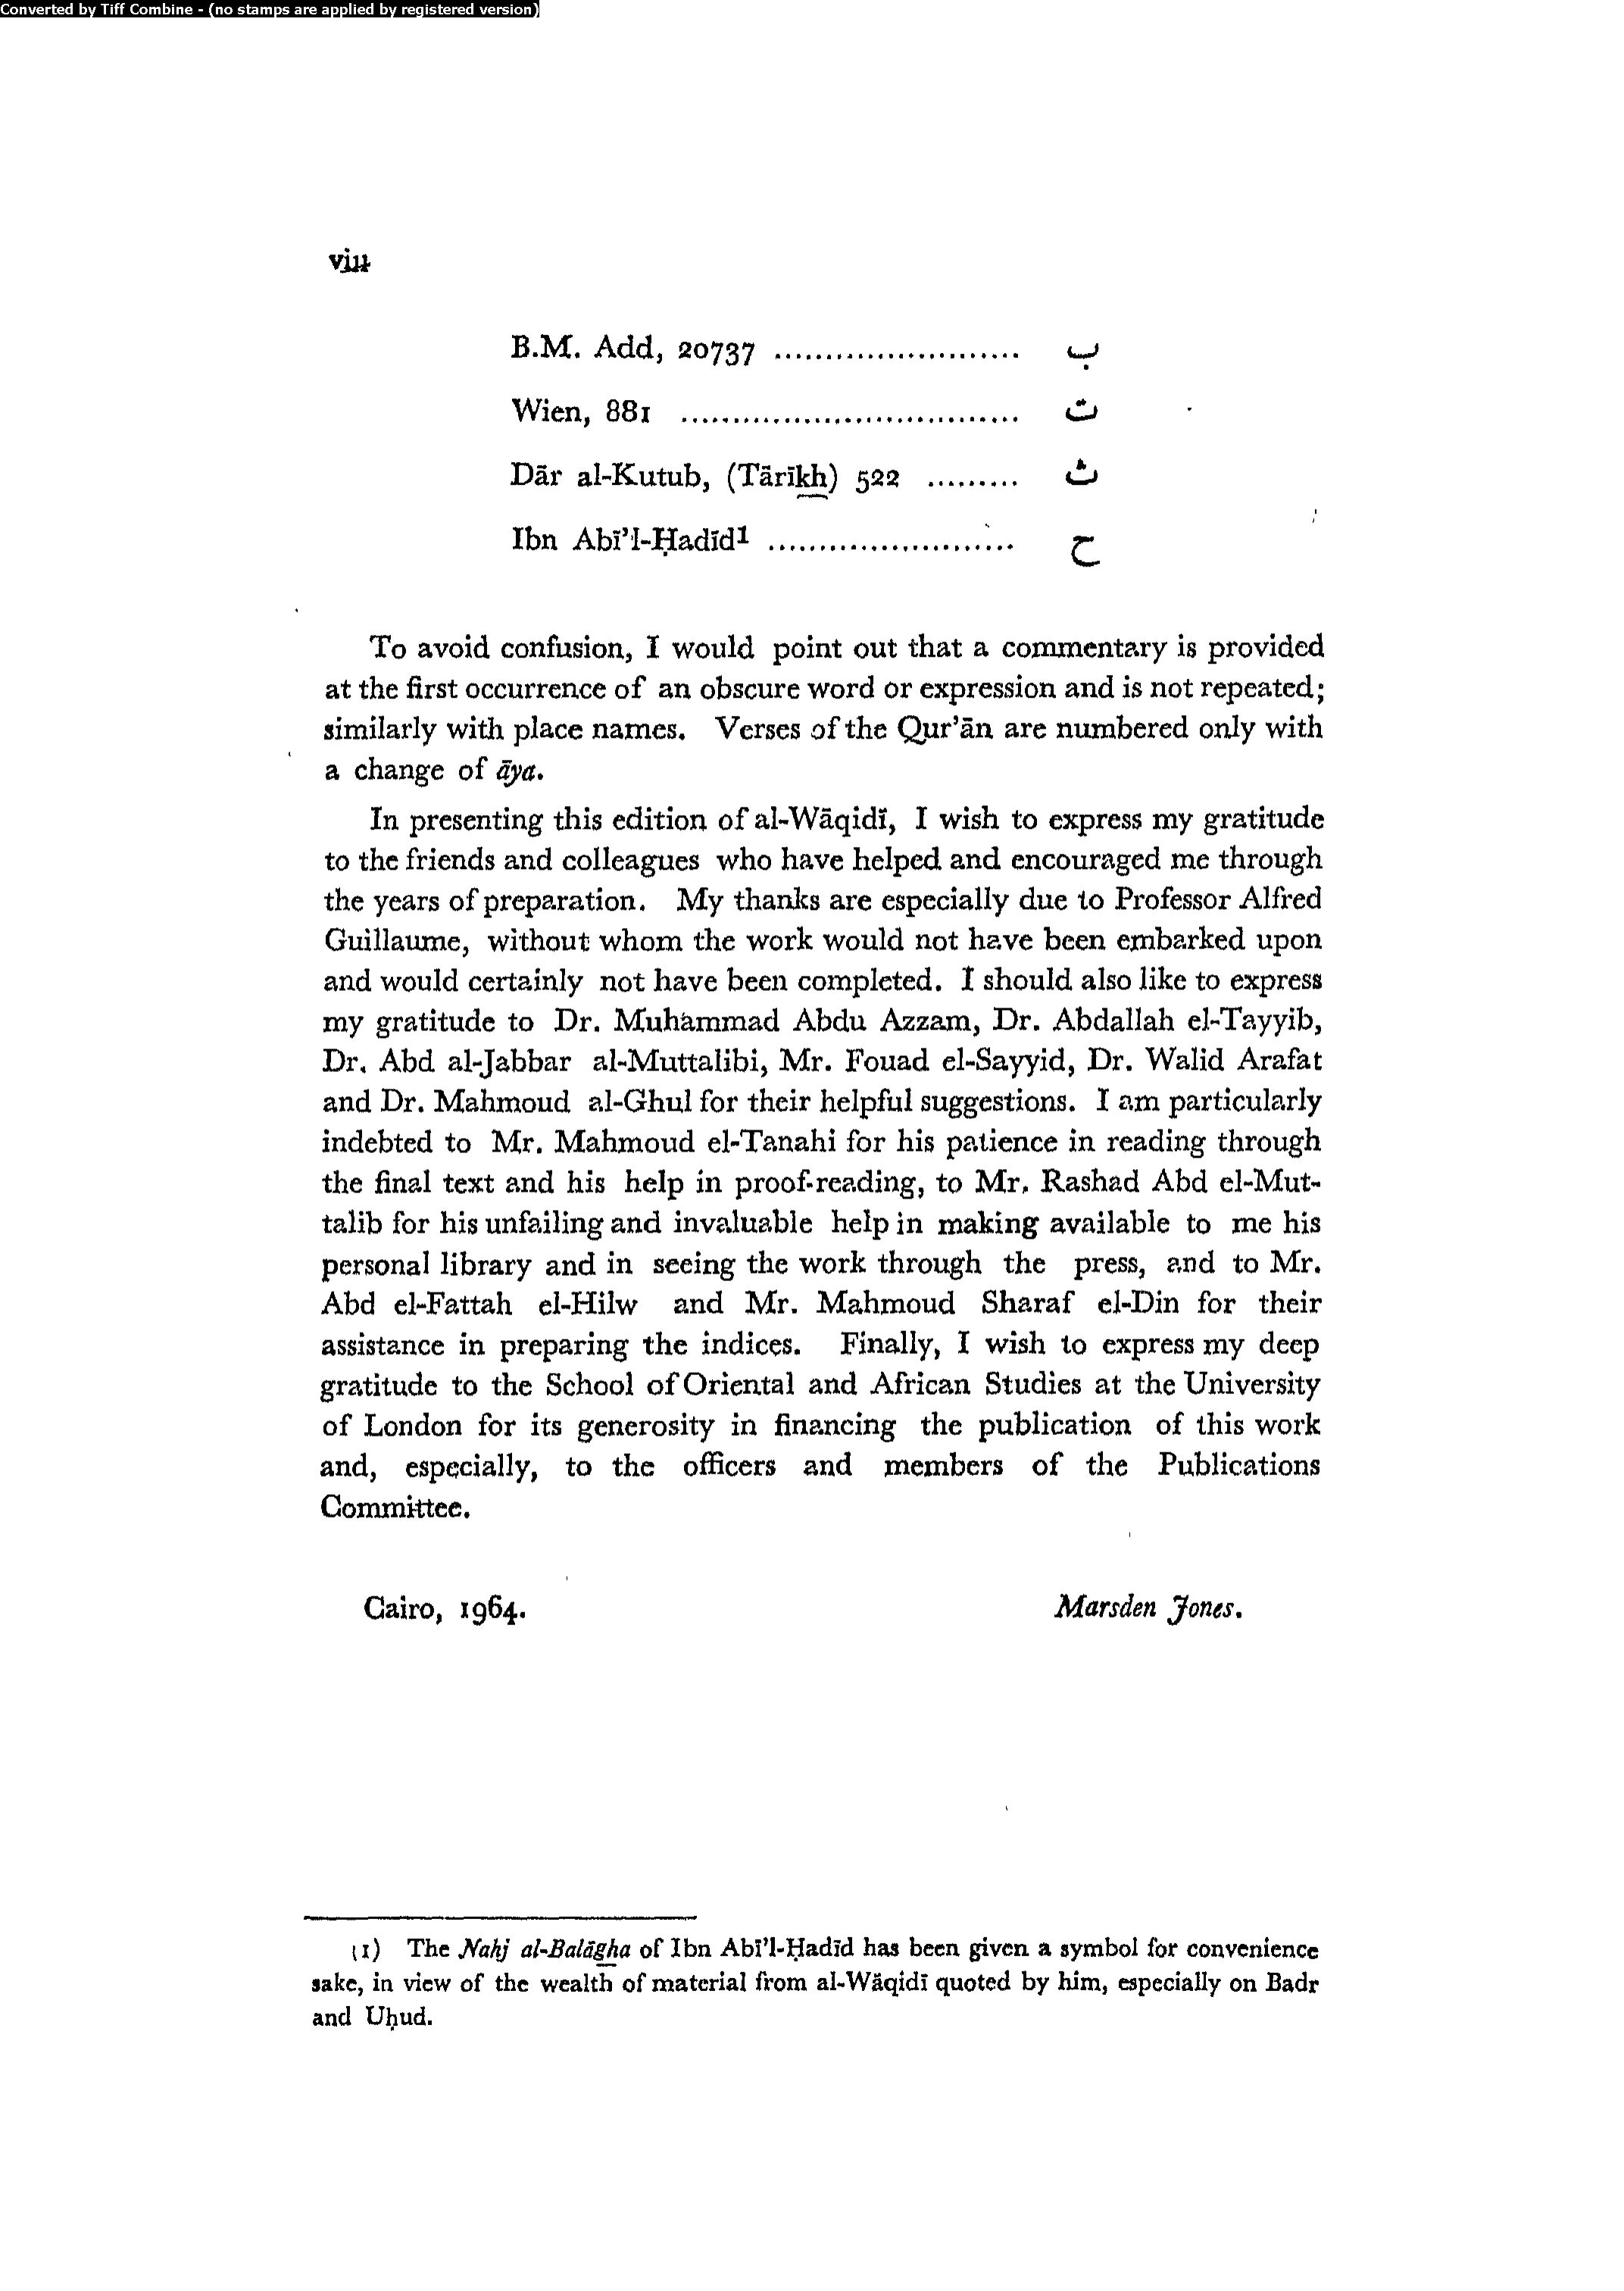 Converted by Tiff Combine - (no stamps are applied by registered version)
viii
B.M. Add, 20737 ........................ ب
Wien, 881 ................................. ت
Dār al-Kutub, (Tārīkh) 522 ......... ث
Ibn Abī’l-Ḥadīd¹ ........................ ح
To avoid confusion, I would point out that a commentary is provided
at the first occurrence of an obscure word or expression and is not repeated;
similarly with place names. Verses of the Qur’ān are numbered only with
a change of āya.
In presenting this edition of al-Wāqidī, I wish to express my gratitude
to the friends and colleagues who have helped and encouraged me through
the years of preparation. My thanks are especially due to Professor Alfred
Guillaume, without whom the work would not have been embarked upon
and would certainly not have been completed. I should also like to express
my gratitude to Dr. Muhammad Abdu Azzam, Dr. Abdallah el-Tayyib,
Dr. Abd al-Jabbar al-Muttalibi, Mr. Fouad el-Sayyid, Dr. Walid Arafat
and Dr. Mahmoud al-Ghul for their helpful suggestions. I am particularly
indebted to Mr. Mahmoud el-Tanahi for his patience in reading through
the final text and his help in proof-reading, to Mr. Rashad Abd el-Mut-
talib for his unfailing and invaluable help in making available to me his
personal library and in seeing the work through the press, and to Mr.
Abd el-Fattah el-Hilw and Mr. Mahmoud Sharaf el-Din for their
assistance in preparing the indices. Finally, I wish to express my deep
gratitude to the School of Oriental and African Studies at the University
of London for its generosity in financing the publication of this work
and, especially, to the officers and members of the Publications
Committee.
Cairo, 1964. Marsden Jones.
(1) The Nahj al-Balāgha of Ibn Abī’l-Ḥadīd has been given a symbol for convenience
sake, in view of the wealth of material from al-Wāqidī quoted by him, especially on Badr
and Uḥud.